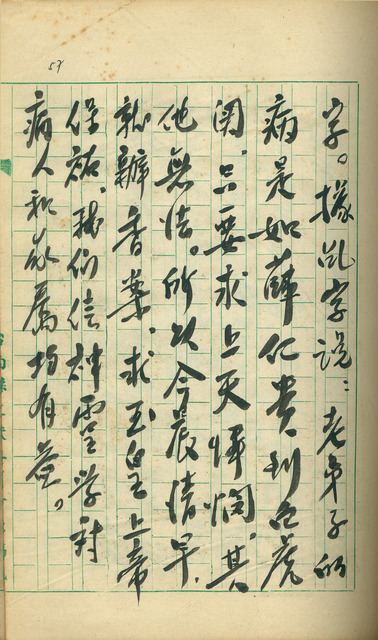 57
字。據乩字說：老弟子的
病是如薛仁貴到白虎
関，只要求上天憐憫，其
他無法。所以今晨清早，
就辦香案，求玉皇上帝
保祐，我们信神灵学，對
病人和家屬均有益。